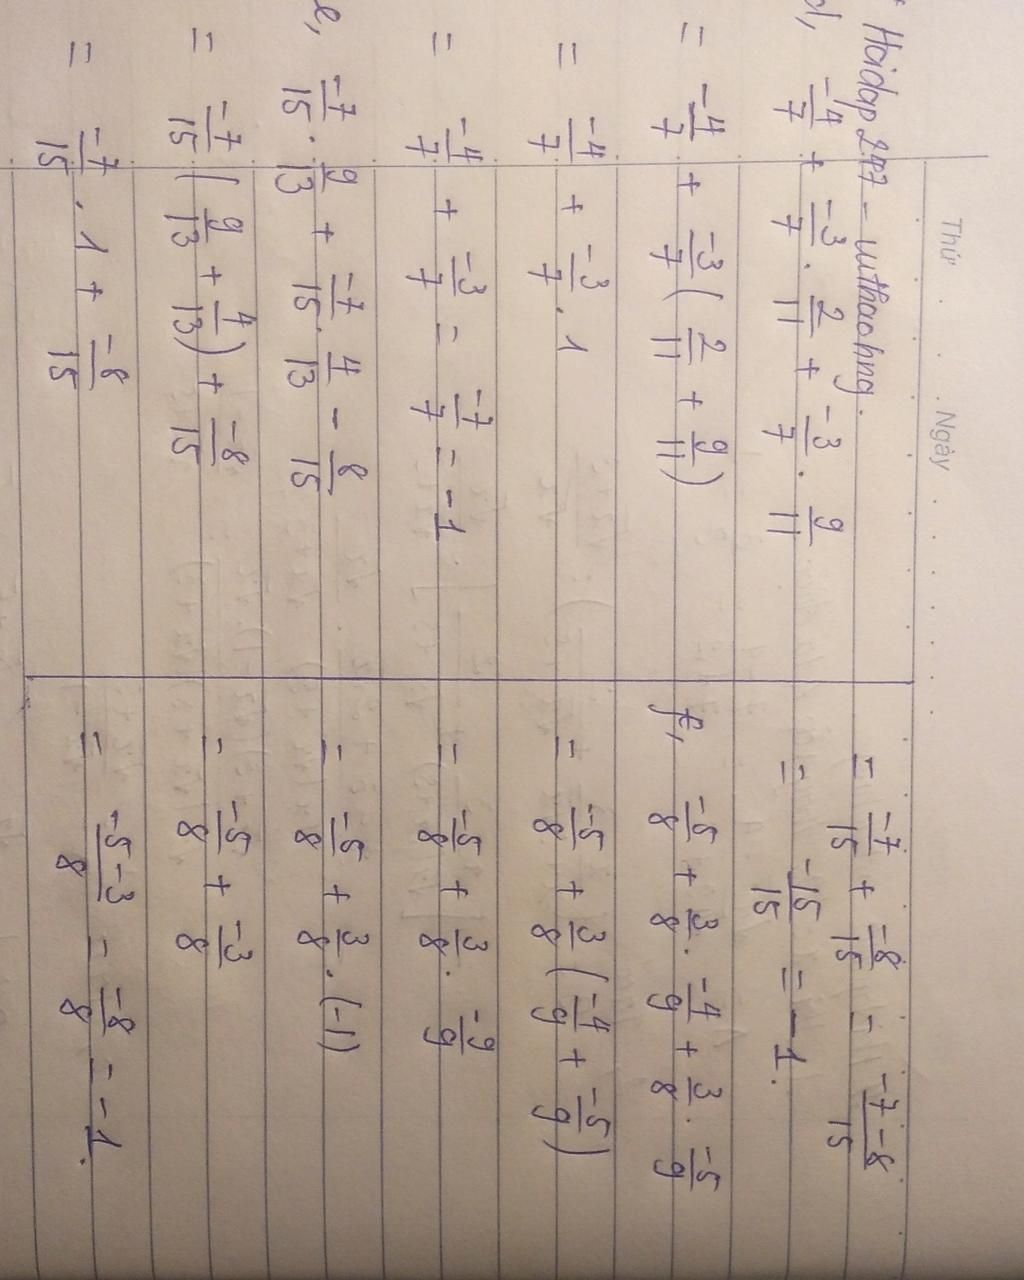 Thứ . . . Ngày . . . . . .
* Hoidap 247 -ututhaohng.
d, -4/7 + -3/7 . 2/11 + -3/7 . 9/11
= -4/7 + -3/7 ( 2/11 + 9/11 )
= -4/7 + -3/7 . 1
= -4/7 + -3/7 = -7/7 = -1
e, -7/15 . 9/13 + -7/15 . 4/13 - 8/15
= -7/15 ( 9/13 + 4/13 ) + -8/15
= -7/15 . 1 + -8/15
= -7/15 + -8/15 = -7-8/15
= -15/15 = -1.
f, -5/8 + 3/8 . -4/9 + 3/8 . -5/9
= -5/8 + 3/8 ( -4/9 + -5/9 )
= -5/8 + 3/8 . -9/9
= -5/8 + 3/8 . (-1)
= -5/8 + -3/8
= -5-3/8 = -8/8 = -1.